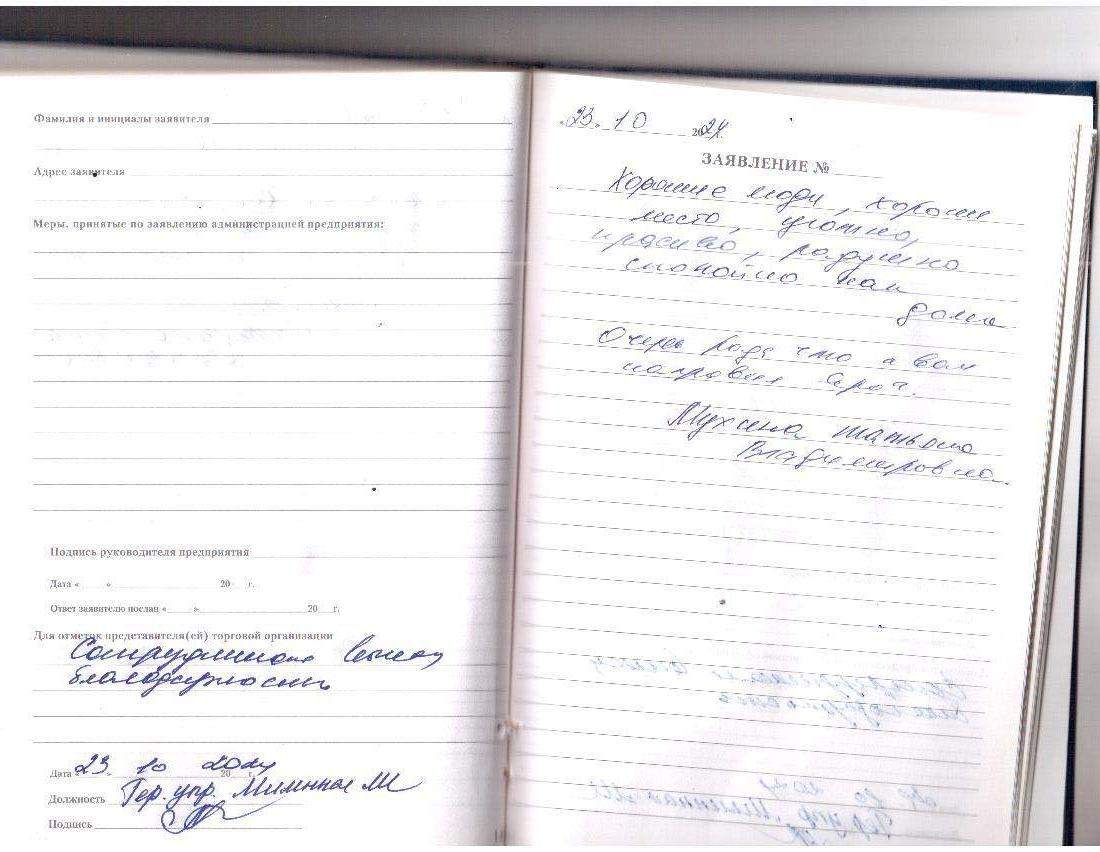 Фамилия и инициалы заявителя
Адрес заявителя
Меры, принятые по заявлению администрацией предприятия:
Подпись руководителя предприятия
Дата « » 20 г.
Ответ заявителю послан « » 20 г.
Для отметок представителя(ей) торговой организации
Сотрудникам вынесу
благодарность
Дата «23» 10 2024 20 г.
Должность Тер. упр.
Подпись
«23» 10 2024
ЗАЯВЛЕНИЕ №
Хорошие люди, хорошее
место, уютно,
красиво, радушно
спокойно как
дома
Очень рада что к вам
направил врач.
Мухина Татьяна
Владимировна.